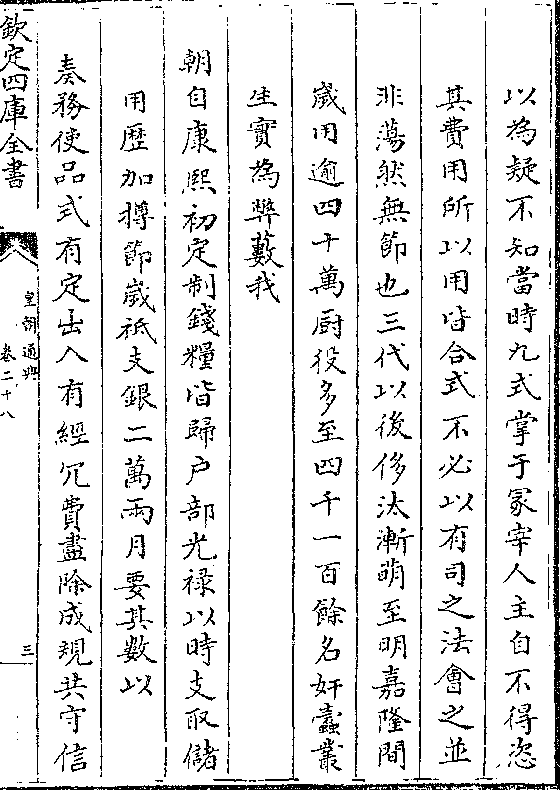 以為疑不知當時九式掌于冢宰人主自不得恣
其費用所以用皆合式不必以有司之法會之並
非蕩然無節也三代以後侈汰漸萌至明嘉隆間
歲用逾四十萬厨役多至四千一百餘名奸蠹叢
生實為弊藪我
朝自康熙初定制錢糧皆歸户部光禄以時支取儲
用歴加撙節歲祇支銀二萬兩月要其數以
奏務使品式有定出入有經冗費盡除成規共守信
欽定四庫全書
皇朝通典
卷二十八
三